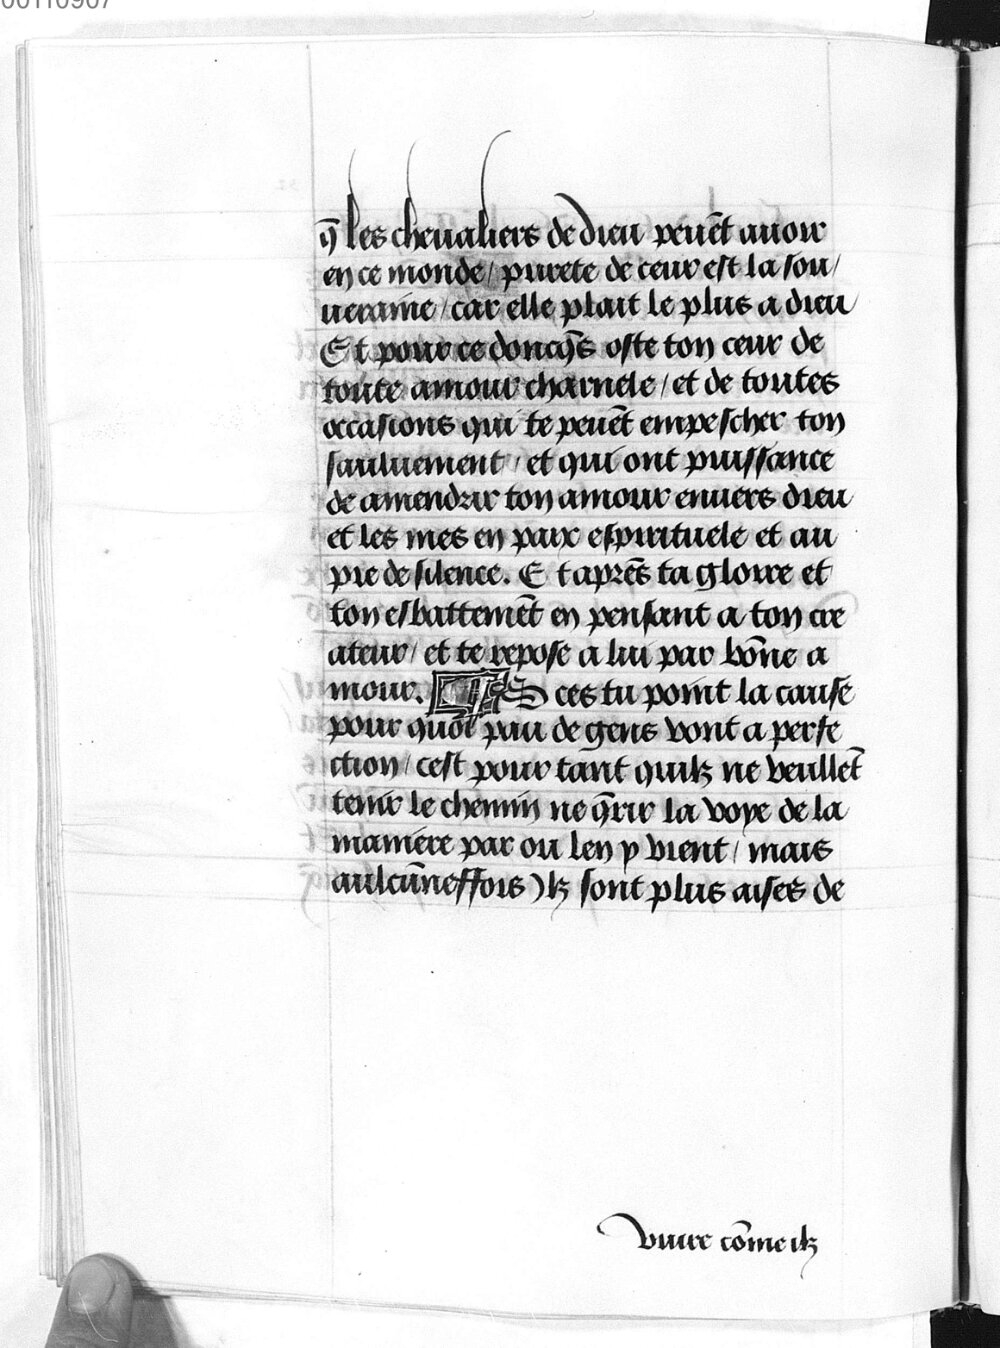 q̄ les cheualiers de dieu peuēt auoir
en ce monde / purete de ceur est la sou/
ueraine / car elle plait le plus a dieu
Et pour ce doncq̄s oste ton ceur de
toute amour charnele / et de toutes
occasions qui te peuēt empescher ton
sauluement / et qui ont puissance
de amendrir ton amour enuers dieu
et les mes en paix espirituele et au
pie de silence. Et aprēs ta gloire et
ton esbattemēt en pensant a ton cre
ateur / et te repose a lui par bōne a
mour. S ces tu point la cause
pour quoi pau de gens vont a perfe
ction / cest pour tāнt quilz ne veullēt
tenir le chemin ne q̄rir la voye de la
maniere par ou len y vient / mais
aulcūneffois Ilz sont plus aises de
viure cōme ilz